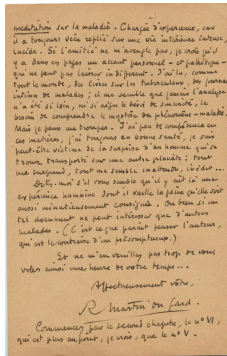 méditation sur la maladie. Chargée d'expérience, car
il a toujours vécu replié sur une vie intérieure intense,
lucide. Si l'amitié ne m'aveugle pas, je crois qu'il
y a dans ces pages un accent personnel - et pathétique -
qui ne peut pas laisser indifférent. J'ai lu, comme
tout le monde, des livres sur les tuberculeux, des journaux
intimes de malades ; il me semble que jamais l'analyse
n'a été si loin, ni si aigu le désir de sincérité, le
besoin de comprendre le mystère du phénomène-maladie.
Mais je peux me tromper. J'ai peu de compétence en
ces matières, j'ai toujours eu bonne santé, je suis
peut-être victime de la surprise d'un homme qui se
trouve transporté sur une autre planète : tout
me surprend, tout me semble inattendu, inédit...
Dites-moi s'il vous semble qu'il y ait là une
expérience humaine dont il vaille la peine qu'elle soit
aussi minutieusement consignée. Ou bien si un
tel document ne peut intéresser que d'autres
malades. (C'est ce que paraît penser l'auteur,
qui est le contraire d'un présomptueux.)
Et ne m'en veuillez pas trop de vous
voler ainsi une heure de votre temps...
Affectueusement vôtre.
R. Martin du Gard.
Commencez par le second chapitre, le n° VI,
qui est plus au point, je crois, que le n° V.